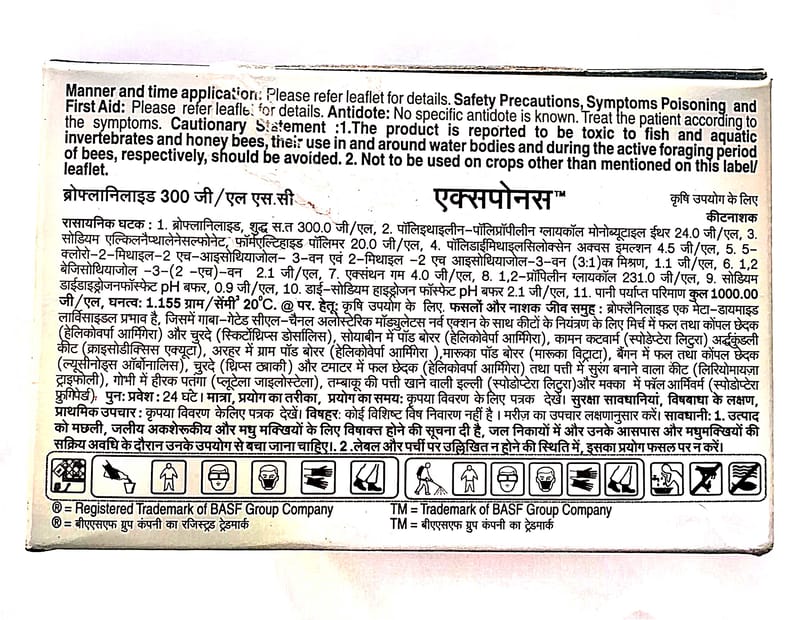 Manner and time application: Please refer leaflet for details. Safety Precautions, Symptoms Poisoning and
First Aid: Please refer leaflet for details. Antidote: No specific antidote is known. Treat the patient according to
the symptoms. Cautionary Statement :1.The product is reported to be toxic to fish and aquatic
invertebrates and honey bees, their use in and around water bodies and during the active foraging period
of bees, respectively, should be avoided. 2. Not to be used on crops other than mentioned on this label/
leaflet.
ब्रोफ्लानिलाइड 300 जी/एल एस.सी
एक्सपोनस™
कृषि उपयोग के लिए
कीटनाशक
रासायनिक घटक : 1. ब्रोफ्लानिलाइड, शुद्ध स.त 300.0 जी/एल, 2. पॉलिइथाइलीन-पॉलिप्रॉपीलीन ग्लायकॉल मोनोब्यूटाइल ईथर 24.0 जी/एल, 3.
सोडियम एल्किलनैप्थालेनेसल्फोनेट, फॉर्मएल्टिहाइड पॉलिमर 20.0 जी/एल, 4. पॉलिडाईमिथाइलसिलोक्सेन अक्वस इमल्शन 4.5 जी/एल, 5. 5-
क्लोरो-2-मिथाइल-2 एच-आइसोथियाजोल- 3-वन एवं 2-मिथाइल -2 एच आइसोथियाजोल-3-वन (3:1)का मिश्रण, 1.1 जी/एल, 6. 1,2
बेंजिसोथियाजोल -3-(2 -एच)-वन 2.1 जी/एल, 7. एक्संथन गम 4.0 जी/एल, 8. 1,2-प्रॉपिलीन ग्लायकॉल 231.0 जी/एल, 9. सोडियम
डाईहाइड्रोजनफॉस्फेट pH बफर, 0.9 जी/एल, 10. डाई-सोडियम हाइड्रोजन फॉस्फेट pH बफर 2.1 जी/एल, 11. पानी पर्याप्त परिमाण कुल 1000.00
जी/एल, घनत्व: 1.155 ग्राम/सेंमी³ 20°C. @ पर. हेतू: कृषि उपयोग के लिए. फसलों और नाशक जीव समुह : ब्रोफ्लेनिलाइड एक मेटा-डायमाइड
लार्विसाइडल प्रभाव है, जिसमें गाबा-गेटेड सीएल-चैनल अलोस्टेरिक मॉड्युलेटस नर्व एक्शन के साथ कीटों के नियंत्रण के लिए मिर्च में फल तथा कोंपल छेदक
(हेलिकोवर्पा आर्मिगेरा) और चुरदे (स्किर्टोथ्रिप्स डोर्सालिस), सोयाबीन में पॉड बोरर (हेलिकोवेर्पा आर्मिगेरा), कामन कटवार्म (स्पोडेप्टेरा लिटुरा) अर्द्धकुंडली
कीट (क्राइसोडीक्सिस एक्यूटा), अरहर में ग्राम पॉड बोरर (हेलिकोवेर्पा आर्मिगेरा ),मारूका पॉड बोरर (मारूका विट्राटा), बैंगन में फल तथा कोंपल छेदक
(ल्यूसीनोड्स ऑर्बोनालिस), चुरदे (थ्रिप्स ट्याकी) और टमाटर में फल छेदक (हेलिकोवेर्पा आर्मिगेरा) तथा पत्ती में सुरंग बनाने वाला कीट (लिरियोमायज़ा
ट्राइफोली), गोभी में हीरक पतंगा (प्लूटेला जाइलोस्टेला), तम्बाकू की पत्ती खाने वाली इल्ली (स्पोडोप्टेरा लिटुरा)और मक्का में फॉल आर्मिवर्म (स्पोडोप्टेरा
फ्रुगिपेर्ड). पुन: प्रवेश : 24 घंटे। मात्रा, प्रयोग का तरीका, प्रयोग का समय: कृपया विवरण के लिए पत्रक देखें। सुरक्षा सावधानियां, विषबाधा के लक्षण,
प्राथमिक उपचार : कृपया विवरण केलिए पत्रक देखें। विषहर: कोई विशिष्ट विष निवारण नहीं है । मरीज़ का उपचार लक्षणानुसार करें। सावधानी: 1. उत्पाद
को मछली, जलीय अकशेरूकीय और मधु मक्खियों के लिए विषाक्त होने की सूचना दी है, जल निकायों में और उनके आसपास और मधुमक्खियों की
सक्रिय अवधि के दौरान उनके उपयोग से बचा जाना चाहिए।. 2 .लेबल और पर्ची पर उल्लिखित न होने की स्थिति में, इसका प्रयोग फसल पर न करें।
® = Registered Trademark of BASF Group Company
TM = Trademark of BASF Group Company
® = बीएएसएफ ग्रुप कंपनी का रजिस्ट्रड ट्रेडमार्क
TM = बीएएसएफ ग्रुप कंपनी का ट्रेडमार्क